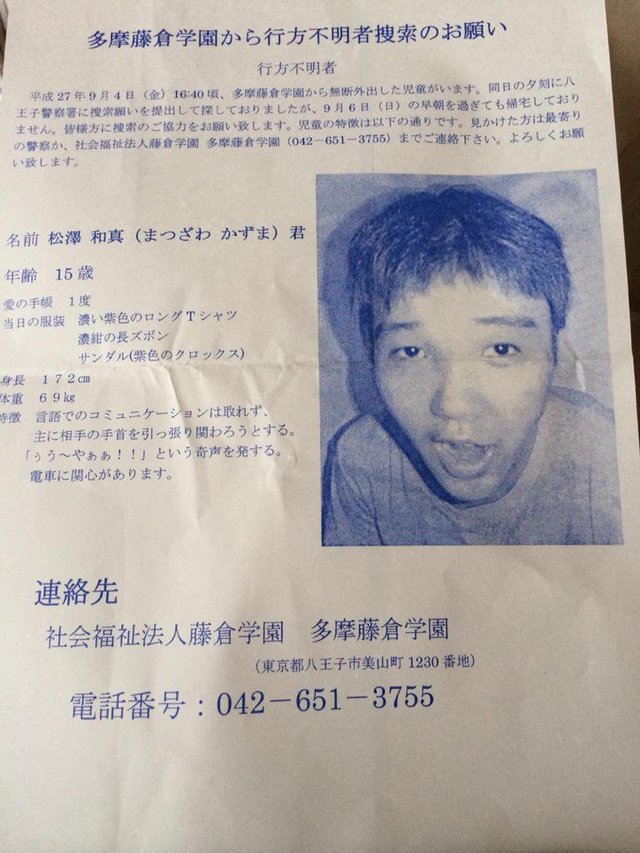 多摩藤倉学園から行方不明者捜索のお願い
行方不明者
平成27年9月4日（金）16:40頃、多摩藤倉学園から無断外出した児童がいます。同日の夕刻に八
王子警察署に捜索願いを提出して探しておりましたが、9月6日（日）の早朝を過ぎても帰宅しており
ません。皆様方に捜索のご協力をお願い致します。児童の特徴は以下の通りです。見かけた方は最寄り
の警察か、社会福祉法人藤倉学園 多摩藤倉学園（042-651-3755）までご連絡下さい。よろしくお願
い致します。
名前 松澤 和真（まつざわ かずま）君
年齢 15歳
愛の手帳 1度
当日の服装 濃い紫色のロングTシャツ
濃紺の長ズボン
サンダル(紫色のクロックス)
身長 172㎝
体重 69㎏
特徴 言語でのコミュニケーションは取れず、
主に相手の手首を引っ張り関わろうとする。
「ぅう～やぁぁ！！」という奇声を発する。
電車に関心があります。
連絡先
社会福祉法人藤倉学園 多摩藤倉学園
（東京都八王子市美山町1230番地）
電話番号：042－651－3755